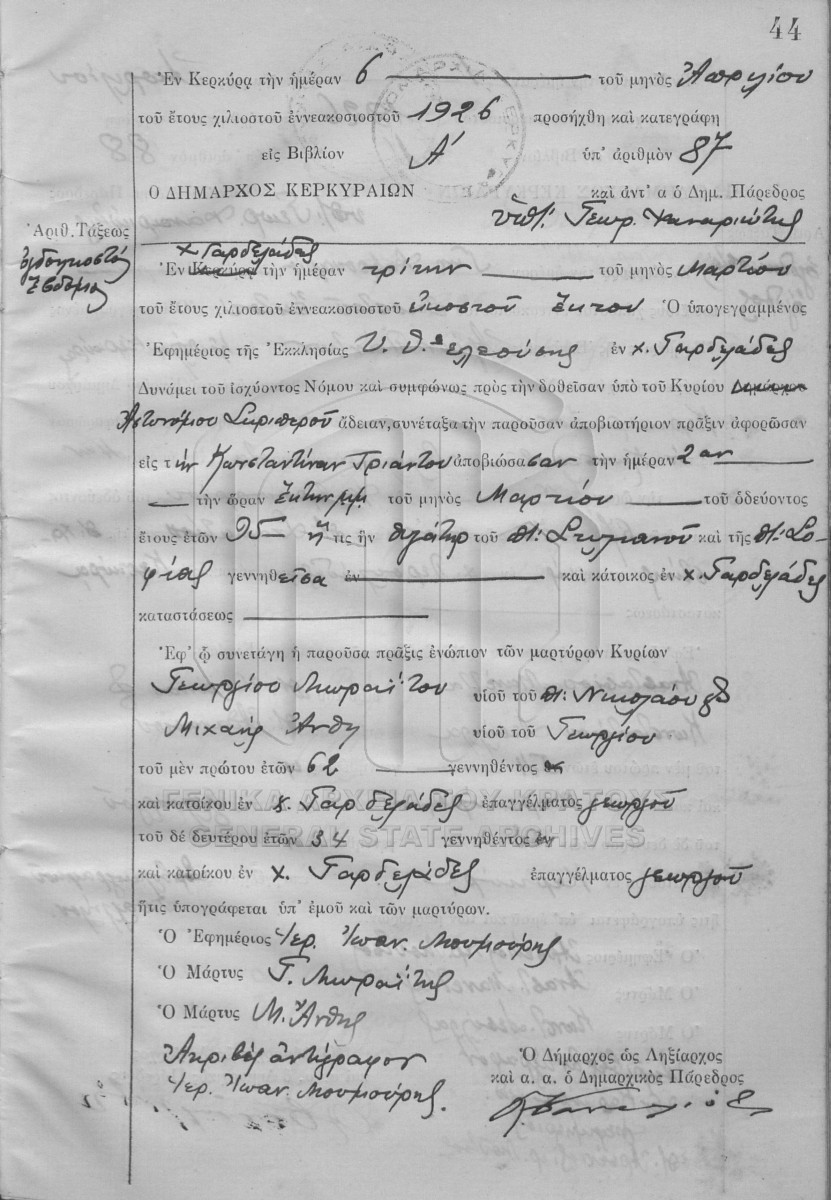 44
Ἐν Κερκύρᾳ τὴν ἡμέραν 6 τοῦ μηνὸς Ἀπριλίου
τοῦ ἔτους χιλιοστοῦ ἐννεακοσιοστοῦ 1926 προσήχθη καὶ κατεγράφη
εἰς Βιβλίον Α' ὑπ' ἀριθμὸν 87
Ὁ ΔΗΜΑΡΧΟΣ ΚΕΡΚΥΡΑΙΩΝ καὶ ἀντ' α ὁ Δημ. Πάρεδρος
Γεωρ.
Ἀριθ. Τάξεως
ὀγδοηκοστὸς
ἕβδομος
χ Γαρδελάδες
Ἐν Κερκύρᾳ τὴν ἡμέραν τρίτην τοῦ μηνὸς Μαρτίου
τοῦ ἔτους χιλιοστοῦ ἐννεακοσιοστοῦ εἰκοστοῦ ἕκτου Ὁ ὑπογεγραμμένος
Ἐφημέριος τῆς Ἐκκλησίας Υ. Θ. Ἐλεούσης ἐν χ. Γαρδελάδες
Δυνάμει τοῦ ἰσχύοντος Νόμου καὶ συμφώνως πρὸς τὴν δοθεῖσαν ὑπὸ τοῦ Κυρίου Δημάρχου
Ἀστυνόμου Σκριπεροῦ ἄδειαν, συνέταξα τὴν παροῦσαν ἀποβιωτήριον πρᾶξιν ἀφορῶσαν
εἰς τὴν Κωνσταντίναν Τριάντου ἀποβιώσασαν τὴν ἡμέραν 2αν
τὴν ὥραν ἕκτην μμ τοῦ μηνὸς Μαρτίου τοῦ ὁδεύοντος
ἔτους ἐτῶν 95 ἥτις ἦν θυγάτηρ τοῦ πτ: Στυλιανοῦ καὶ τῆς πτ: Σο-
φίας γεννηθεῖσα ἐν καὶ κάτοικος ἐν χ. Γαρδελάδες
καταστάσεως
Ἐφ' ᾧ συνετάγη ἡ παροῦσα πρᾶξις ἐνώπιον τῶν μαρτύρων Κυρίων
Γεωργίου Μωραΐτου υἱοῦ τοῦ πτ: Νικολάου
Μιχαὴλ Ἄνθη υἱοῦ τοῦ Γεωργίου
τοῦ μὲν πρώτου ἐτῶν 62 γεννηθέντος ἐν
καὶ κατοίκου ἐν χ. Γαρδελάδες ἐπαγγέλματος γεωργοῦ
τοῦ δὲ δευτέρου ἐτῶν 34 γεννηθέντος ἐν
καὶ κατοίκου ἐν χ. Γαρδελάδες ἐπαγγέλματος γεωργοῦ
ἥτις ὑπογράφεται ὑπ' ἐμοῦ καὶ τῶν μαρτύρων.
Ὁ Ἐφημέριος Ἱερ. Ἰωαν. Μουμούρης
Ὁ Μάρτυς Γ. Μωραΐτης
Ὁ Μάρτυς Μ. Ἄνθης
Ἀκριβὲς ἀντίγραφον
Ἱερ. Ἰωαν. Μουμούρης.
Ὁ Δήμαρχος ὡς Ληξίαρχος
καὶ α. α. ὁ Δημαρχικὸς Πάρεδρος
ΓΕΝΙΚΑ ΑΡΧΕΙΑ ΤΟΥ ΚΡΑΤΟΥΣ
GENERAL STATE ARCHIVES